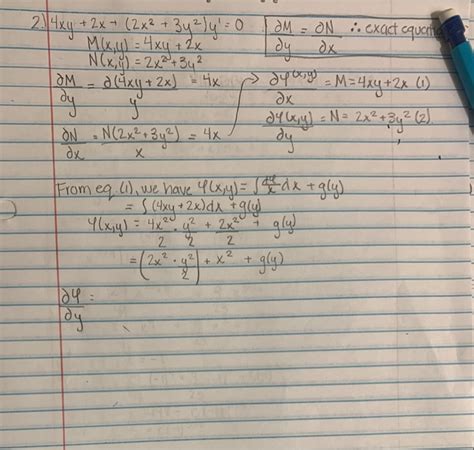 2.) 4xy + 2x + (2x² + 3y²)y' = 0
M(x,y) = 4xy + 2x
N(x,y) = 2x² + 3y²
∂M/∂y = ∂(4xy + 2x)/y = 4x
∂N/∂x = N(2x² + 3y²)/x = 4x
∂M/∂y = ∂N/∂x ∴ exact
→ ∂φ(x,y)/∂x = M = 4xy + 2x (1)
∂φ(x,y)/∂y = N = 2x² + 3y² (2)
From eq. (1), we have φ(x,y) = ∫ ∂φ/x dx + g(y)
= ∫ (4xy + 2x)dx + g(y)
φ(x,y) = 4x²/2 · y²/2 + 2x²/2 + g(y)
= (2x² · y²/2) + x² + g(y)
∂φ/∂y =